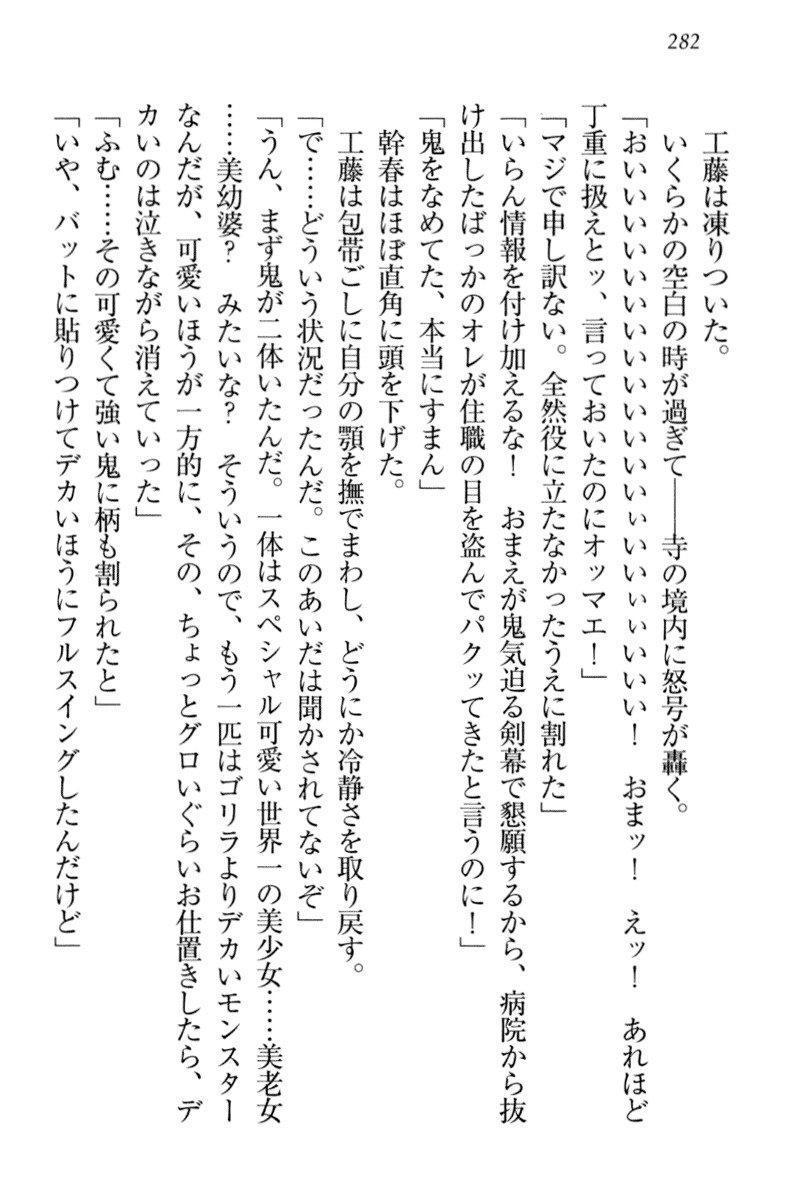 282
工藤は凍りついた。
いくらかの空白の時が過ぎて――寺の境内に怒号が轟く。
「おいいいいいいいいいいいいいいぃいいぃぃいいい！　おまッ！　えッ！　あれほど
丁重に扱えとッ、言っておいたのにオッマエ！」
「マジで申し訳ない。全然役に立たなかったうえに割れた」
「いらん情報を付け加えるな！　おまえが鬼気迫る剣幕で懇願するから、病院から抜
け出したばっかのオレが住職の目を盗んでパクッてきたと言うのに！」
「鬼をなめてた、本当にすまん」
幹春はほぼ直角に頭を下げた。
工藤は包帯ごしに自分の顎を撫でまわし、どうにか冷静さを取り戻す。
「で……どういう状況だったんだ。このあいだは聞かされてないぞ」
「うん、まず鬼が二体いたんだ。一体はスペシャル可愛い世界一の美少女……美老女
……美幼婆？　みたいな？　そういうので、もう一匹はゴリラよりデカいモンスター
なんだが、可愛いほうが一方的に、その、ちょっとグロいぐらいお仕置きしたら、デ
カいのは泣きながら消えていった」
「ふむ……その可愛くて強い鬼に柄も割られたと」
「いや、バットに貼りつけてデカいほうにフルスイングしたんだけど」